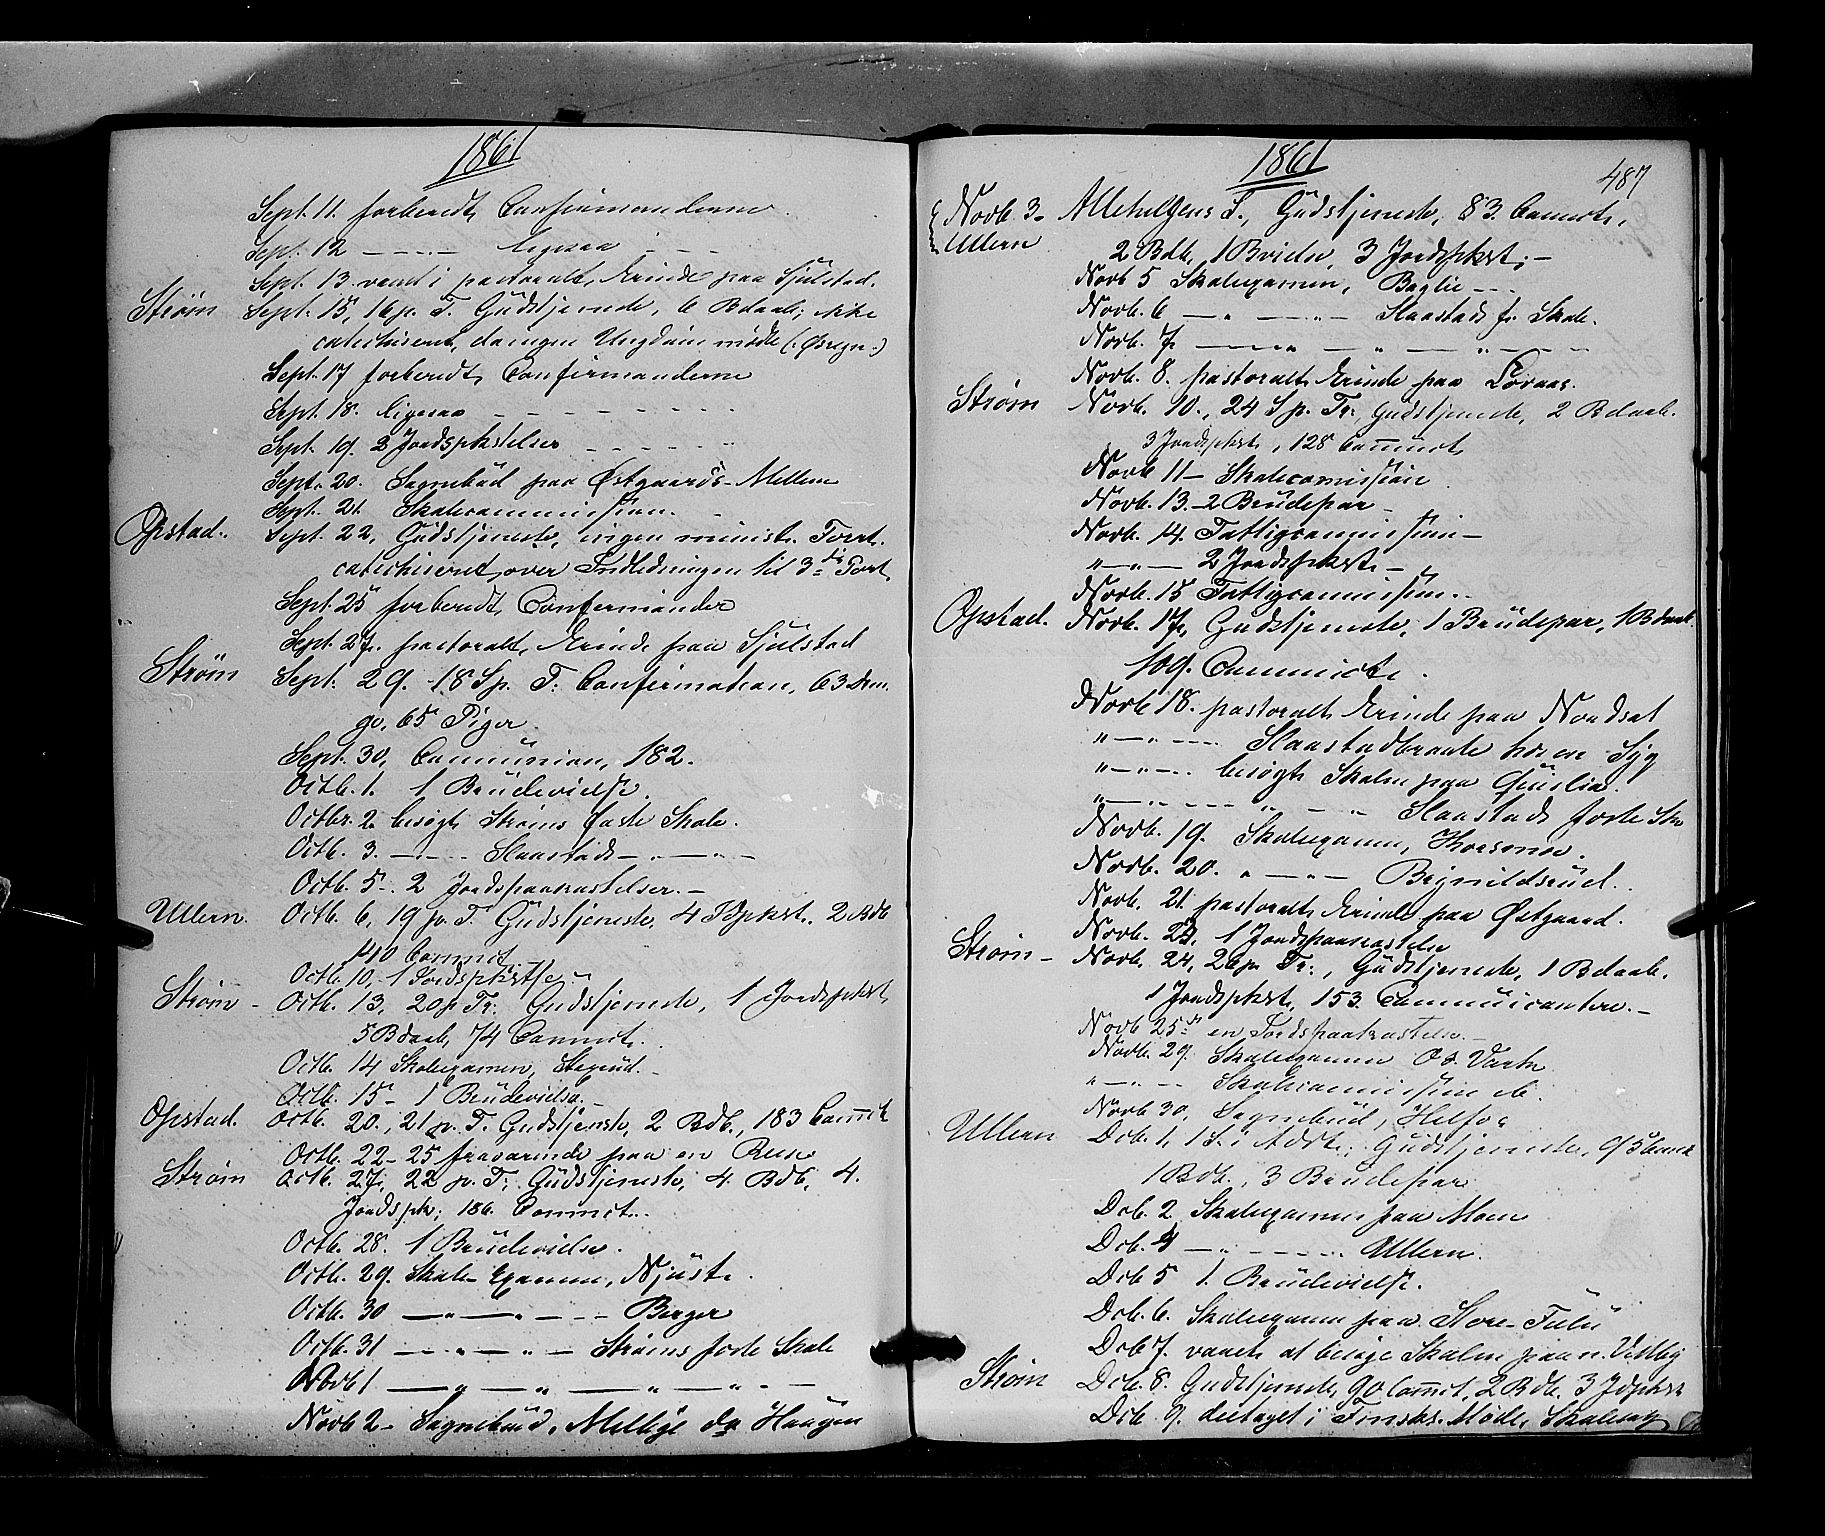 1861
Sept. 11. forberedt Confirmanderne.
Sept. 12 — — ligesaa — —
Sept. 13. vandt i pastoralt Erinde paa Sjulstad.
Strøm Sept. 15, 16 p. T. Gudstjeneste, 6 Bdaab; ikke
catechiseret, da ingen Ungdom mødte (: Øsregn :)
Sept. 17 forberedt Confirmanderne
Sept. 18. ligesaa — — — —
Sept. 19. 2 Jordspkstelser — — —
Sept. 20. Sognebud paa Østgaards-Mellem
Sept. 21. Skolecommission.
Opstad. Sept. 22, Gudstjeneste, ingen minist. Forret.
catechiseret over Indledningen til 3die Part
Sept. 25 forberedt Confirmander
Sept. 27. pastoralt Erinde paa Sjulstad
Strøm Sept. 29. 18 S. p. T. Confirmation, 63 Dren
ge, 65 Piger.
Sept. 30, Communion, 182.
Octb. 1. 1 Brudevielse.
Octbr. 2. besøgt Strøms faste Skole.
Octb. 3. — — Slaastads — — —
Octb. 5. 2 Jordspaakastelser. —
Ullern. Octb. 6, 19 p. T. Gudstjeneste, 4 Jdpkst. 2 Bdb
140 Commct.
Octb. 10, 1 Jordspkstlse
Strøm — Octb. 13, 20 p. Tr. Gudstjeneste, 1 Jordspkst
5 Bdaab, 74 Commct.
Octb. 14 Skoleexamen, Stegrud.
Octb. 15 — 1 Brudevielse.
Opstad. Octb. 20., 21 p. T. Gudstjenste, 2 Bdb., 183 Com̅ct
Octb. 22–25 fraværende paa en Reise
Strøm Octb. 27, 22 p. T. Gudstjeneste, 4 Bdb, 4.
Jordspk; 186. Commct.
Octb. 28. 1 Brudevielse.
Octb. 29. Skole-Examen, Njust.
Octb. 30 — „ — „ — — Berger
Octb. 31 — „ — „ — Strøms faste Skole
Novb 1 — „ — „ — „ — „ —
Novb 2 – Sognebud, Melbye da Haagen
1861
487
Novb. 3 – Allehelgens F., Gudstjeneste, 83. Commct.,
Ullern 2 Bdb, 1 Brudev, 3 Jordspkst; —
Novb 5 Skoleexamen, Baglie — —
Novb. 6 — „ — „ — Slaastads f. Skole.
Novb. 7 — „ — „ — „ —
Novb. 8. pastoralt Erinde paa Loraas.
Strøm Novb. 10., 24 S. p. Tr., Gudstjeneste, 2 Bdaab.
3 Jordspkst, 128 Com̅unct.
Novb 11 – Skolecomission.
Novb. 13 – 2 Brudepar –
Novb. 14. Fattigcommission –
„ — „ — 2 Jordspkst. –
Novb. 15 Fattigcommission.
Opstad. Novb. 17, Gudstjeneste, 1 Brudepar, 1 Bdaab.
109. Communicte.
Novb 18. pastoralt Erinde paa Nordset
„ — „ — Slaastadbraate hos en Syg
„ — „ — besøgt Skolen paa
„ — „ — „ — „ Slaastads faste Sko
Novb. 19. Skoleexamen, Korsmoe.
Novb. 20. „ — „ — Brynildsrud.
Novb. 21. pastoralt Erinde paa Østgaard.
Novb. 23, 1 Jordspaakastelse
Strøm – Novb. 24, 26 p. Tr., Gudstjeneste, 1 Bdaab.
1 Jordspkst, 153 Communicantere. –
Novb 25de en Jordspaakastelse. –
Novb. 29. Skoleexamen
„ — „ — Skolecommission
Novb 30, Sognebud, Helfos
Ullern Dcb. 1, 1 S. i Advt; Gudstjeneste, 95 Commct
1 Bdb., 3 Brudepar
Dcb. 2 Skoleexamen paa Moen
Dcb. 4 — „ — — Ullern.
Dcb 5 1. Brudevielse.
Dcb. 6. Skoleexamen paa Store-Fulu
Dcb 7. at besøge Skolen paa n. Veslby
Strøm Dcb. 8. Gudstjeneste, 90 Commct, 2 Bdb. 3 Jdpkst
Dcb. 9. deltaget i Møde,